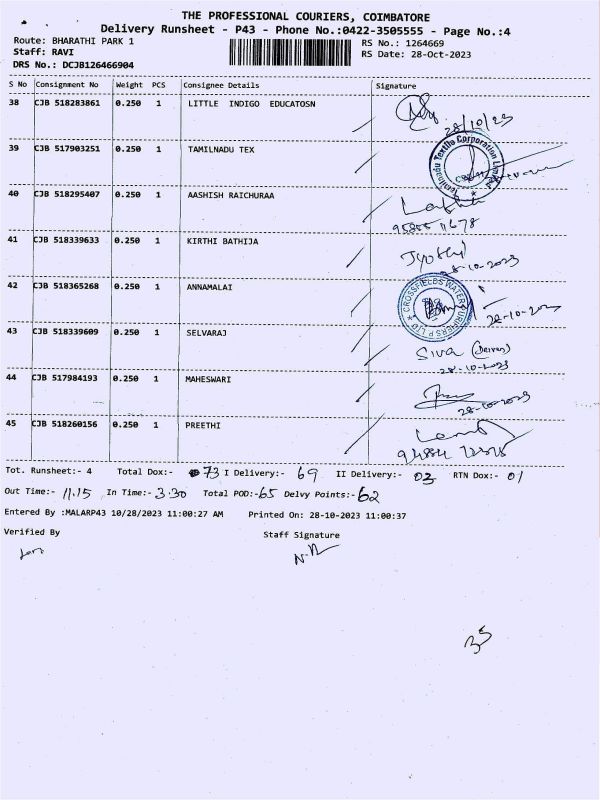 THE PROFESSIONAL COURIERS, COIMBATORE
Delivery Runsheet - P43 - Phone No.:0422-3505555 - Page No.:4
Route: BHARATHI PARK 1 RS No.: 1264669
Staff: RAVI RS Date: 28-Oct-2023
DRS No.: DCJB126466904
S No Consignment No Weight PCS Consignee Details Signature
38 CJB 518283861 0.250 1 LITTLE INDIGO EDUCATOSN
28/10/23
39 CJB 517903251 0.250 1 TAMILNADU TEX
Tamilnadu Textile Corporation Limited
40 CJB 518295407 0.250 1 AASHISH RAICHURAA
41 CJB 518339633 0.250 1 KIRTHI BATHIJA Jyothi
28-10-2023
42 CJB 518365268 0.250 1 ANNAMALAI
CROSSFIELDS WATER PURIFIERS P LTD
28-10-2023
43 CJB 518339609 0.250 1 SELVARAJ
Siva
28-10-2023
44 CJB 517984193 0.250 1 MAHESWARI
28-10-2023
45 CJB 518260156 0.250 1 PREETHI
Tot. Runsheet:- 4 Total Dox:- 73 I Delivery:- 69 II Delivery:- 03 RTN Dox:- 01
Out Time:- 11.15 In Time:- 3.30 Total POD:- 65 Delvy Points:- 62
Entered By :MALARP43 10/28/2023 11:00:27 AM Printed On: 28-10-2023 11:00:37
Verified By Staff Signature
35